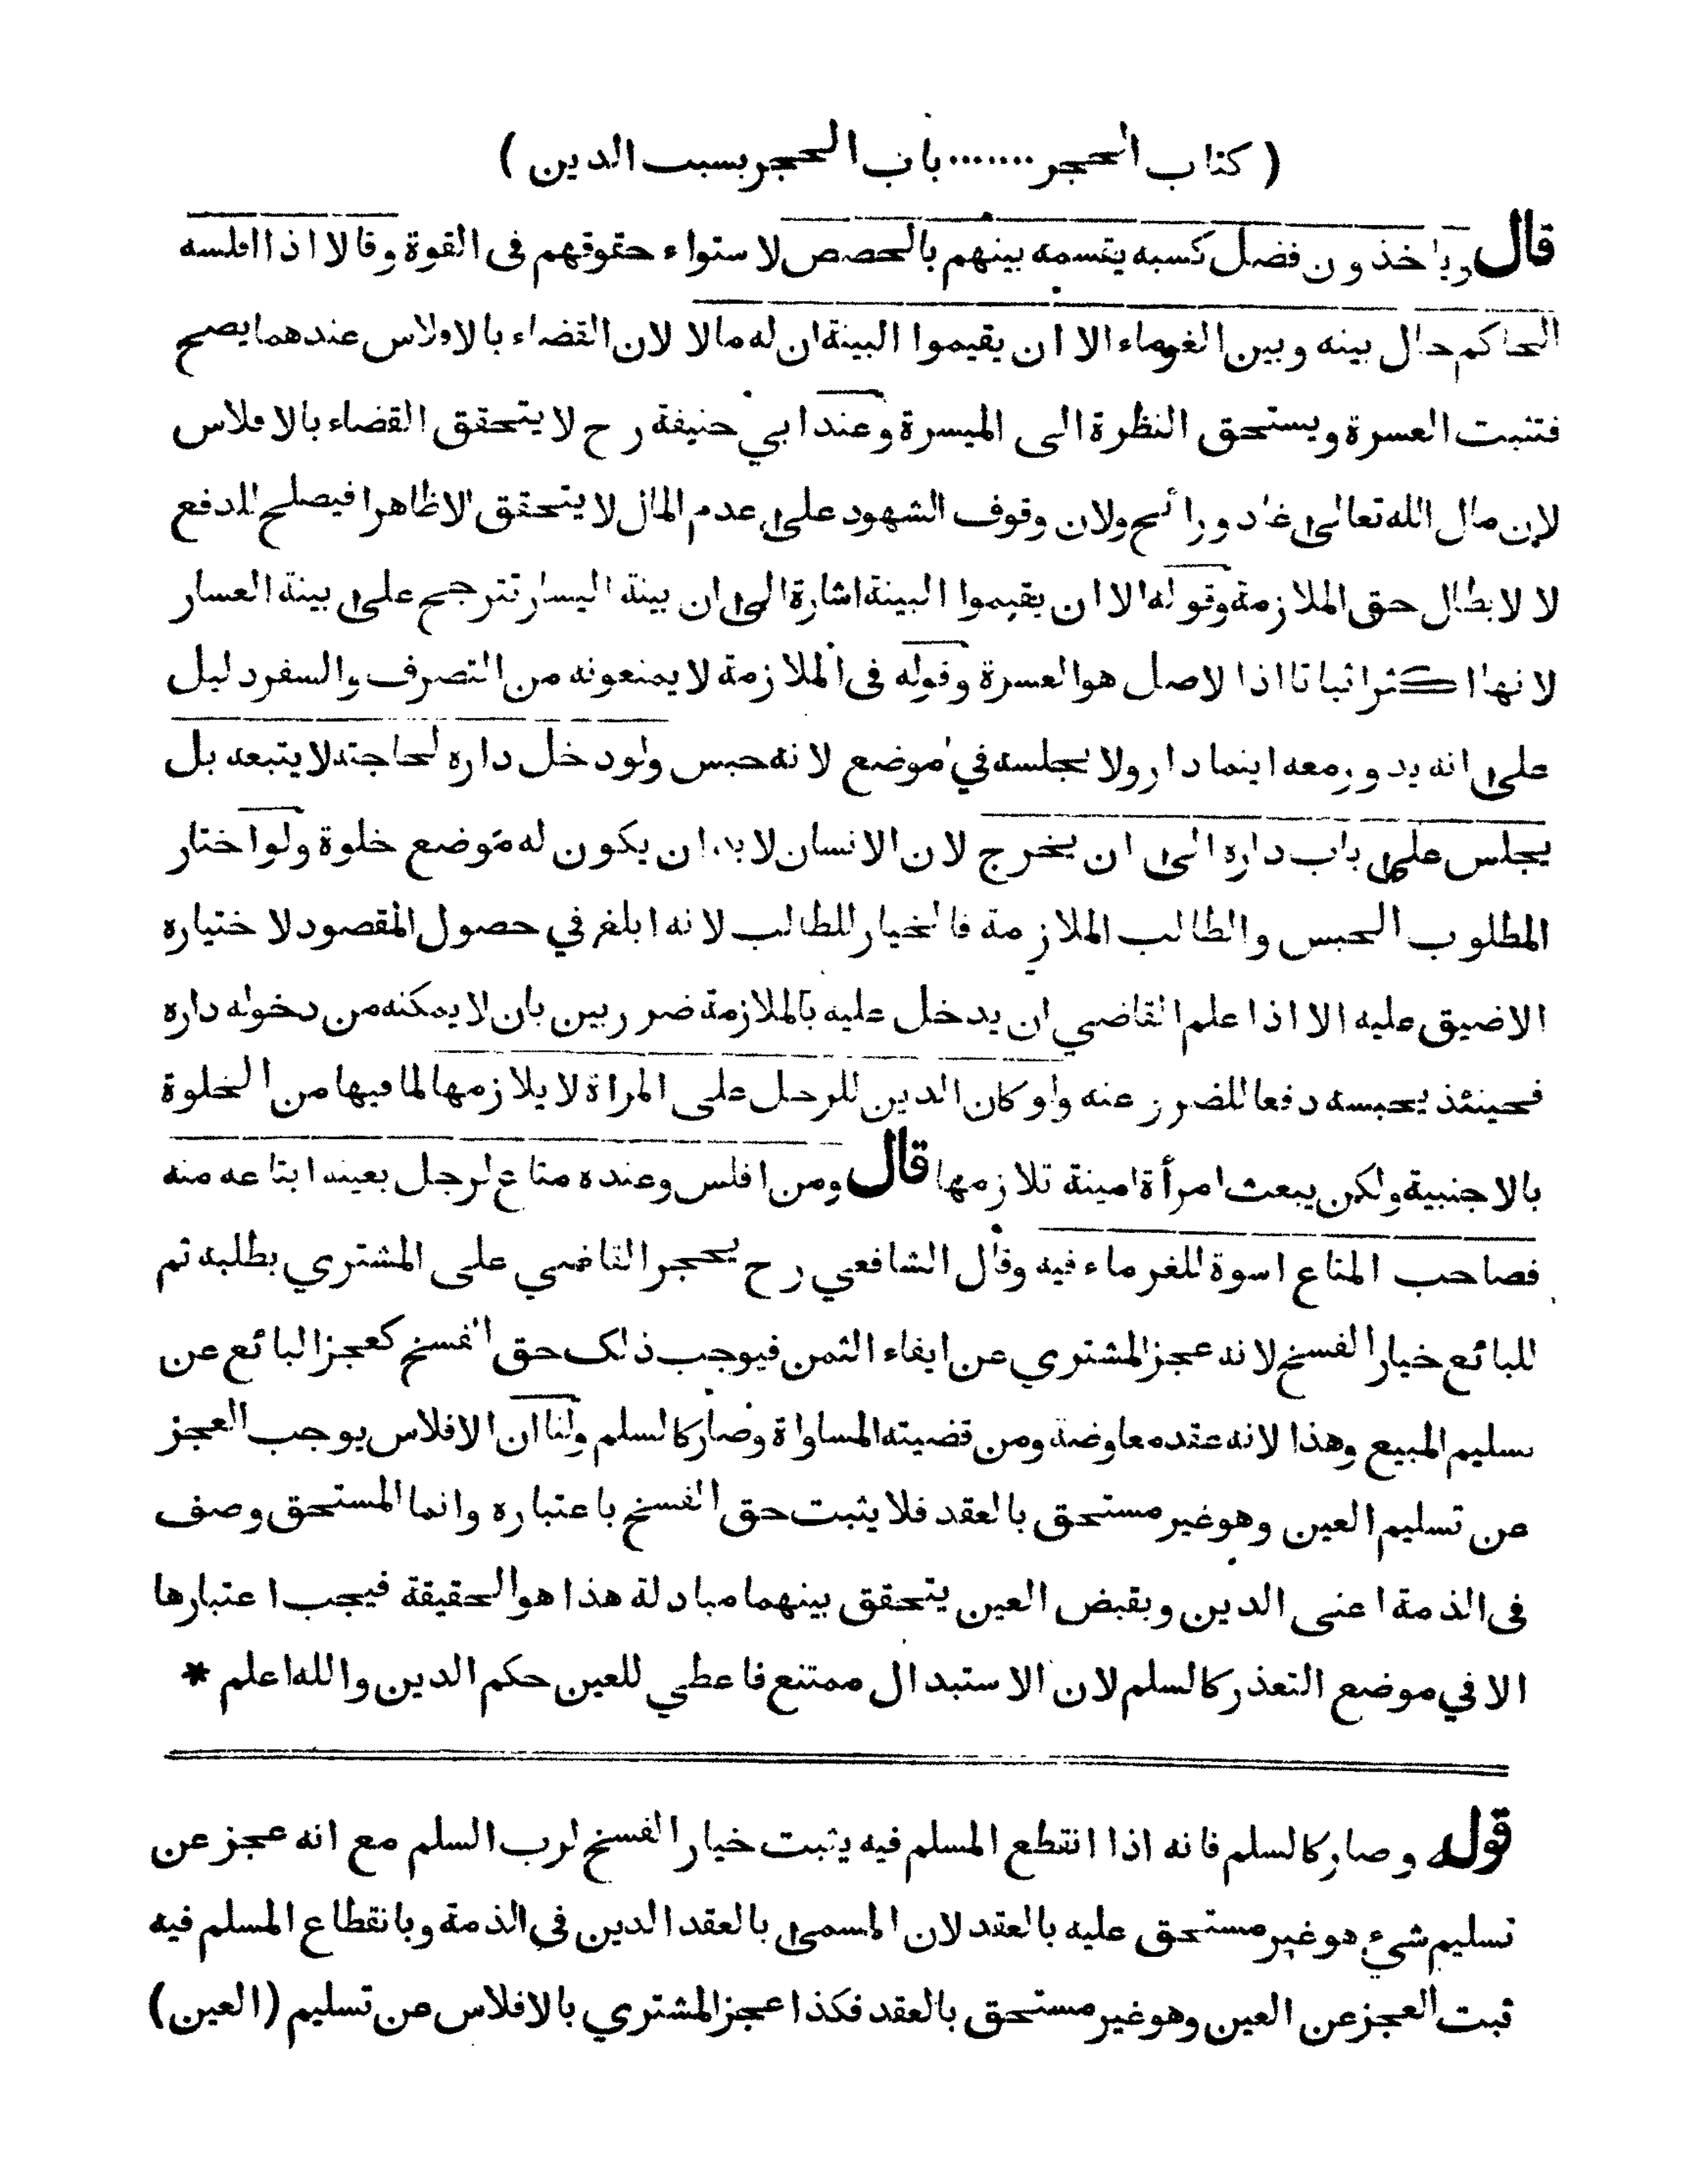 ( كتاب الحجر ....... باب الحجر بسبب الدين )
قال وياخذون فضل كسبه يقسمه بينهم بالحصص لاستواء حقوقهم فى القوة وقالا اذا افلسه
الحاكم حال بينه وبين الغرماء الا ان يقيموا البينة ان له مالا لان القضاء بالافلاس عندهما يصح
فتثبت العسرة ويستحق النظرة الى الميسرة وعند ابي حنيفة رح لا يتحقق القضاء بالافلاس
لان مال الله تعالى غاد ورائح ولان وقوف الشهود على عدم المال لا يتحقق الا ظاهرا فيصلح للدفع
لا لابطال حق الملازمة وقوله الا ان يقيموا البينة اشارة الى ان بينة اليسار تترجح على بينة العسار
لانها اكثر اثباتا اذا لاصل هو العسرة وقوله فى الملازمة لا يمنعونه من التصرف والسفر دليل
على انه يدور معه اينما دار ولا يجلسه في موضع لانه حبس ولو دخل داره لحاجته لا يتبعه بل
يجلس على باب داره الى ان يخرج لان الانسان لابد ان يكون له موضع خلوة ولو اختار
المطلوب الحبس والطالب الملازمة فالخيار للطالب لانه ابلغ في حصول المقصود لاختياره
الاضيق عليه الا اذا علم القاضي ان يدخل عليه بالملازمة ضرر بين بان لا يمكنه من دخوله داره
فحينئذ يحبسه دفعا للضرر عنه ولو كان الدين للرجل على المراة لا يلازمها لما فيها من الخلوة
بالاجنبية ولكن يبعث امرأة امينة تلازمها قال ومن افلس وعنده متاع لرجل بعينه ابتاعه منه
فصاحب المتاع اسوة للغرماء فيه وقال الشافعي رح يحجر القاضي على المشتري بطلبه ثم
للبائع خيار الفسخ لانه عجز المشتري عن ايفاء الثمن فيوجب ذلك حق الفسخ كعجز البائع عن
تسليم المبيع وهذا لانه عقد معاوضة ومن قضيته المساواة وصار كالسلم ولنا ان الافلاس يوجب العجز
عن تسليم العين وهو غير مستحق بالعقد فلا يثبت حق الفسخ باعتباره وانما المستحق وصف
فى الذمة اعنى الدين وبقبض العين يتحقق بينهما مبادلة هذا هو الحقيقة فيجب اعتبارها
الا في موضع التعذر كالسلم لان الاستبدال ممتنع فاعطي للعين حكم الدين والله اعلم *
قوله وصار كالسلم فانه اذا انقطع المسلم فيه يثبت خيار الفسخ لرب السلم مع انه عجز عن
تسليم شيء هو غير مستحق عليه بالعقد لان المسمى بالعقد الدين فى الذمة وبانقطاع المسلم فيه
ثبت العجز عن العين وهو غير مستحق بالعقد فكذا عجز المشتري بالافلاس عن تسليم (العين)